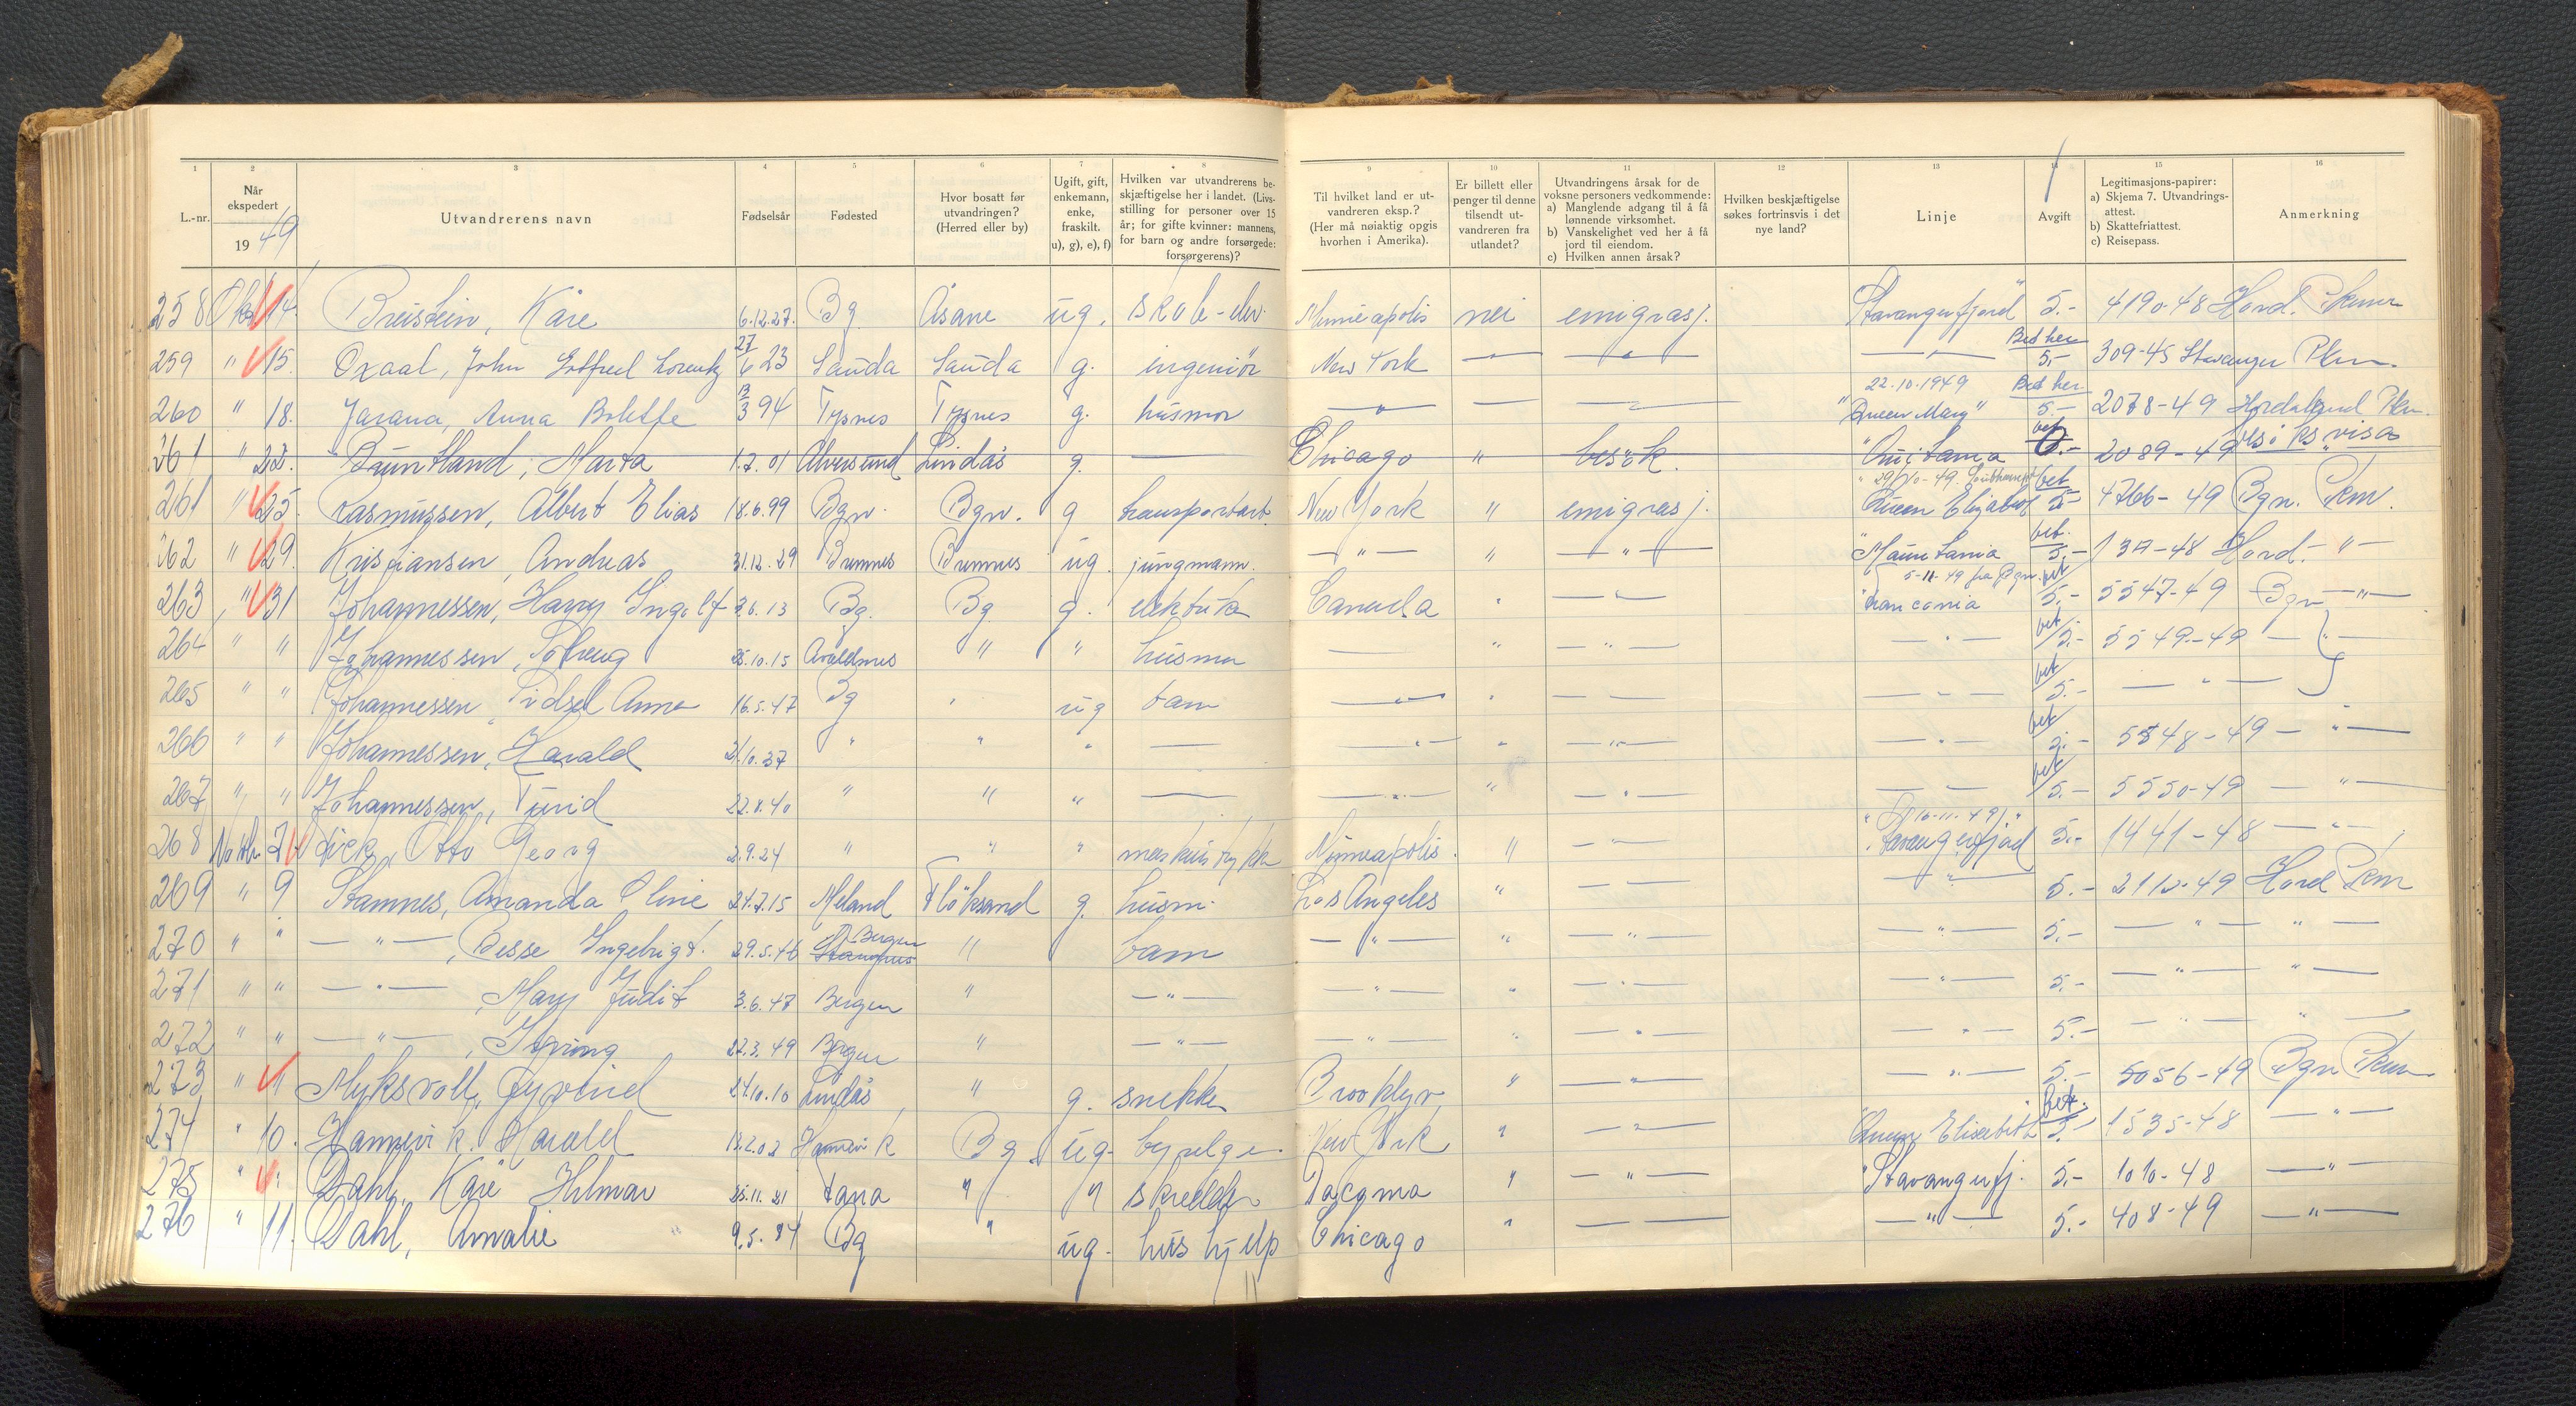 1 2 3 4 5 6 7 8 9 10 11 12 13 14 15 16
L.-nr.
Når ekspedert
19 49
Utvandrerens navn
Fødselsår
Fødested
Hvor bosatt før utvandringen? (Herred eller by)
Ugift, gift, enkemann, enke, fraskilt. u), g), e), f)
Hvilken var utvandrerens beskjæftigelse her i landet. (Livsstilling for personer over 15 år; for gifte kvinner: mannens, for barn og andre forsørgede: forsørgerens)?
Til hvilket land er utvandreren eksp.? (Her må nøiaktig opgis hvorhen i Amerika).
Er billett eller penger til denne tilsendt utvandreren fra utlandet?
Utvandringens årsak for de voksne personers vedkommende:
a) Manglende adgang til å få lønnende virksomhet.
b) Vanskelighet ved her å få jord til eiendom.
c) Hvilken annen årsak?
Hvilken beskjæftigelse søkes fortrinsvis i det nye land?
Linje
Avgift
Legitimasjons-papirer:
a) Skjema 7. Utvandringsattest.
b) Skattefriattest.
c) Reisepass.
Anmerkning
258 Okt 14. Breistein, Kåre 6.12.27. Bg Åsane ug. skole-elev. Minneapolis nei emigrasj. Stavangerfjord 5.- 4190-48 Hord.
259 " 15. Oxaal, John Gotfred Lorentz 27/6 23 Sauda Sauda g. ingeniör New York — " — — " — — " — Bet her 5.- 309-45 Stavanger Pkm.
260 " 18. Anna Bolette 13/3 94 Tysnes Tysnes g. husmor — " — — — " — 22.10.1949 "Queen Mary" Bet her 5.- 2078-49 Hordaland Pkm.
261 " 22. Marta 1.7.01 Alversund Lindås g. — Chicago " besök. bet 2089-49 besøksvisa
261 " 25. Rasmussen, Albert Elias 18.6.99 Bgn. Bgn. g transportarb. New York " emigrasj. 29/10-49 Queen Elizabeth bet 5- 4766-49 Bgn. Pkm.
262 " 29. Kristiansen, Andreas 31.12.29 Bremnes Bremnes ug. jungmann. — " — " — " — "Mauretania bet. 5.- 137-48 Hord. - " -
263 " 31 Johannessen, Harry Ingolf 3.6.13 Bg. Bg g. Canada " — " — 5-11-49 fra Bgn. bet 5.- 5547-49 Bgn — " —
264 " " Johannessen, Solveig 25.10.15 Avaldsnes " " husmor — " — " — — " — bet 5.- 5549-49 — " —
265 " " Johannessen Sidsel Anne 16.5.47 Bg " ug barn — " — " — — — " — bet 5.- — " —
266 " " Johannessen, Harald 21.10.37 " " " — — " — " — " — — " — bet 5.- 5548-49 — " —
267 " " Johannessen, Turid 22.8.40 " " " — — " — " — " — — — bet 5.- 5550-49 — " —
268 Novbr. 7 Otto Georg 2.9.24 " " " Minneapolis. " — " — 16-11-49 "Stavangerfjord 5.- 1441-48 — " —
269 " 9 Stamnes, Amanda Oline 24.7.15 Meland Fløksand g. husm. Los Angeles " — — — " — 5.- 2112-49 Hord Pkm
270 " " — " —, Besse Ingebrigt. 29.5.46 Bergen " barn — " — " — " — — " — 5.- — " — " —
271 " " — " —, Mary Judit 3.6.47 Bergen " — " — — " — " — " — — " — 5.- — " — " —
272 " " — " —, 22.3.49 Bergen " — " — — " — " — " — — " — 5.- — " — " —
273 " " Myksvoll, Øyvind 24.10.10 Lindås " g. snekker Brooklyn " — " — — " — 5.- 5056-49 Bgn Pkm
274 " 10. Hannevik. Harald 13.2.02 Hannevik Bg. ug- New York " — " — "Queen Elisabeth bet. 5.- 1535-48 — " —
275 " " Dahl, Kåre Hilmar 25.11.21 Fana " " skredder Tacoma " — " — "Stavangerfj. 5.- 1010-48 — " —
276 " 11. Dahl, Amalie 9.5.84 Bg " ug- hushjelp Chicago " — — — " — 5.- 408-49 — " —